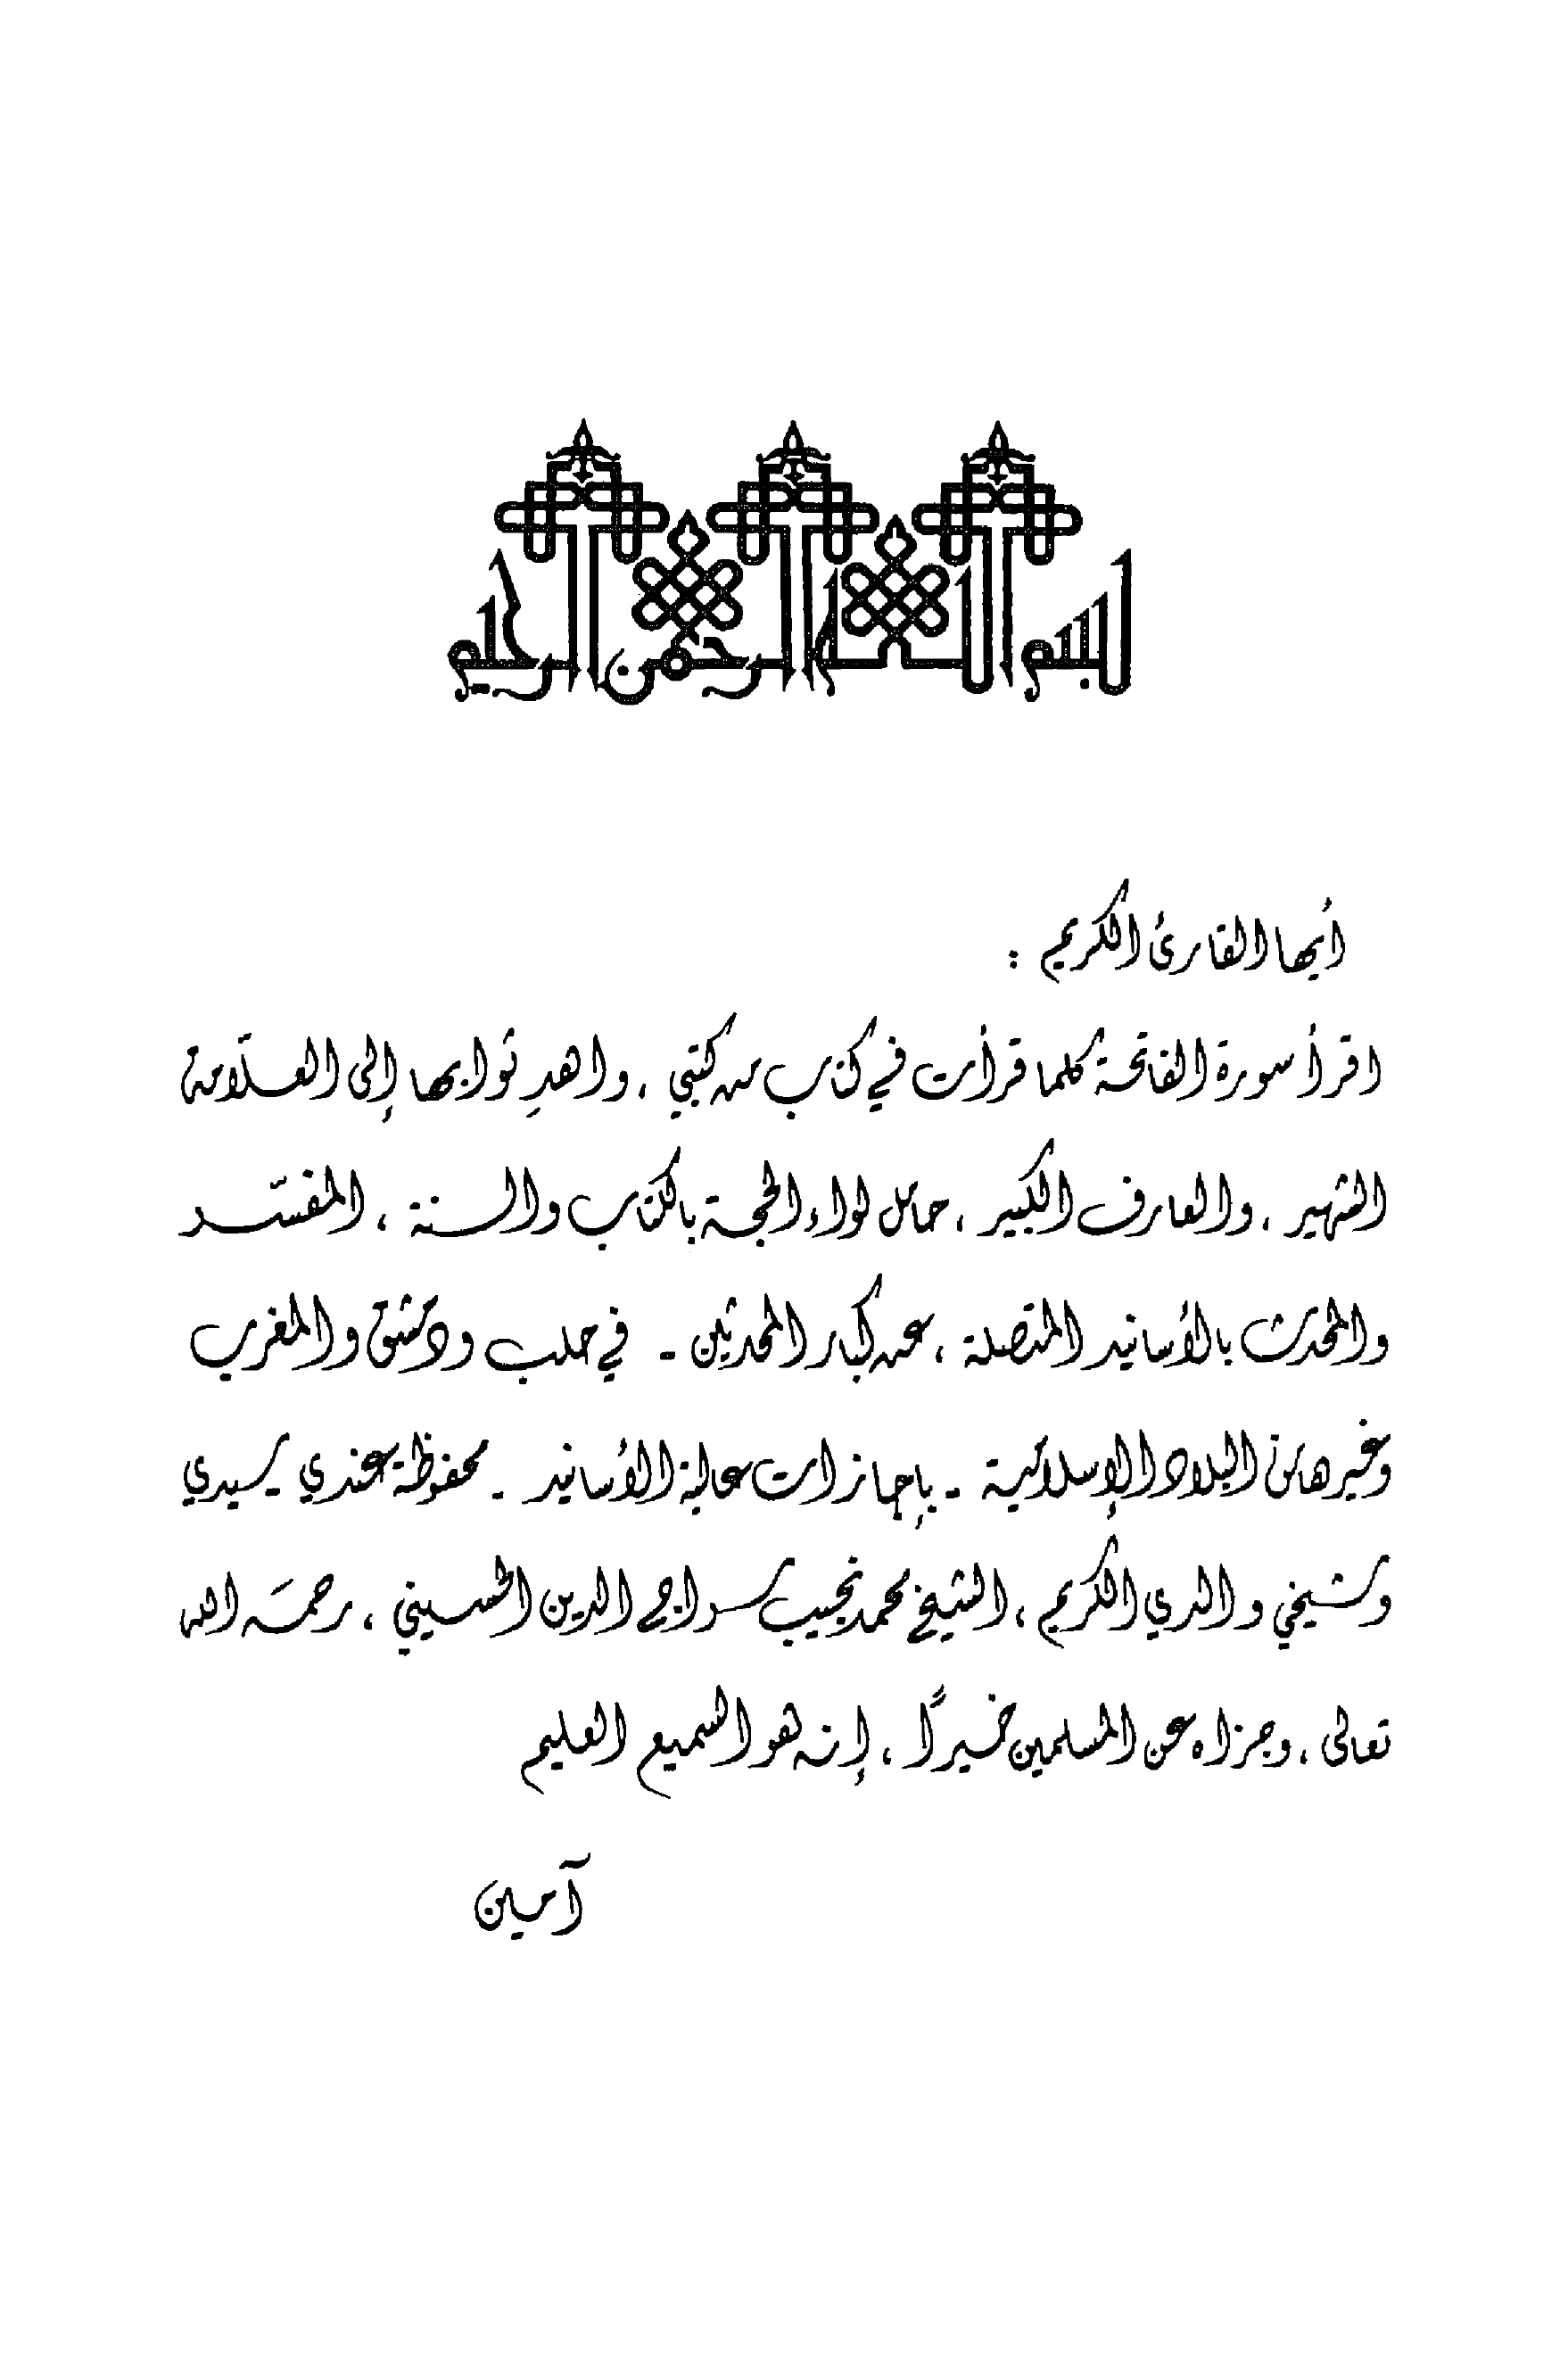 بسم الله الرحمن الرحيم
أيها القارئ الكريم :
اقرأ سورة الفاتحة كلما قرأت في كتاب من كتبي ، واهدِ ثوابها إلى العلّامة
الشهير ، والعارف الكبير ، حامل لواء الحجة بالكتاب والسنة ، المفسّر
والمحدث بالأسانيد المتصلة ، عن كبار المحدثين - في حلب ودمشق والمغرب
وغيرها من البلاد الإسلامية - بإجازات عالية الأسانيد - محفوظة عندي - سيدي
وشيخي والدي الكريم ، الشيخ محمد نجيب سراج الدين الحسيني ، رحمَه الله
تعالى ، وجزاه عن المسلمين خيراً ، إنه هو السميع العليم
آمين